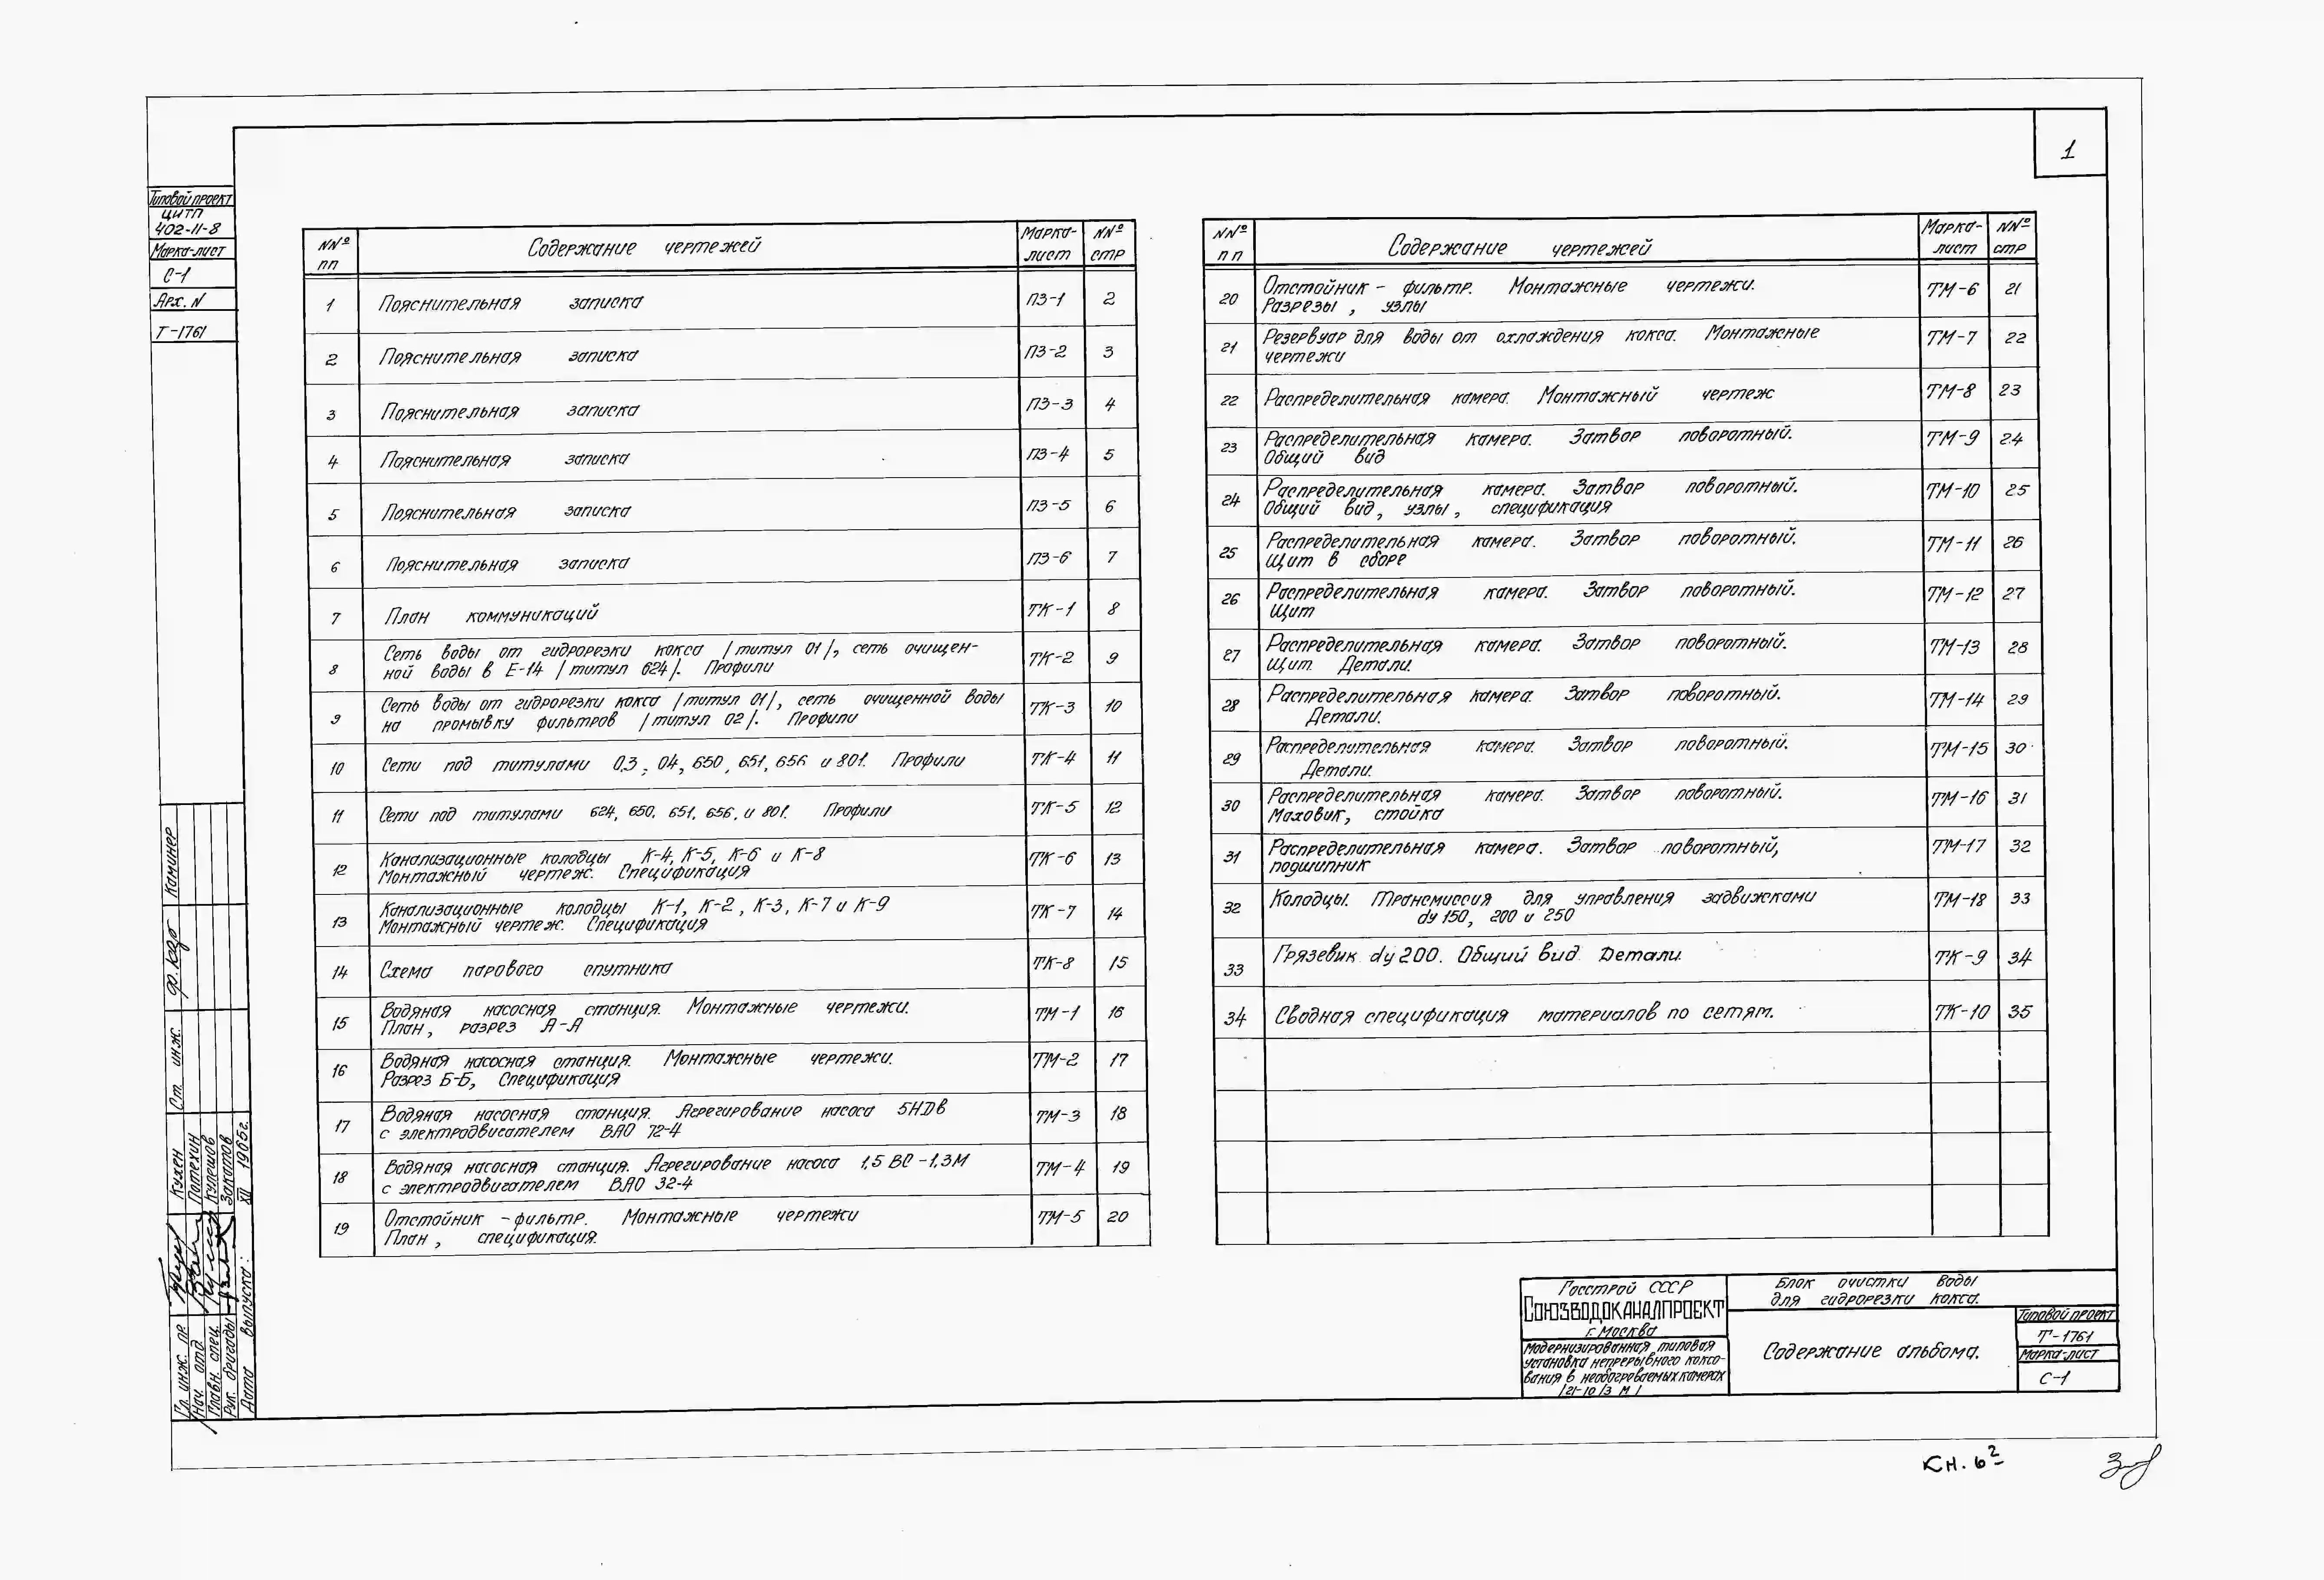 1
Типовой проект
ЦИТП
402-11-8
Марка-лист
С-1
Арх. N
Т-1761
NNº пп Содержание чертежей Марка-лист NNº стр
1 Пояснительная записка ПЗ-1 2
2 Пояснительная записка ПЗ-2 3
3 Пояснительная записка ПЗ-3 4
4 Пояснительная записка ПЗ-4 5
5 Пояснительная записка ПЗ-5 6
6 Пояснительная записка ПЗ-6 7
7 План коммуникаций ТК-1 8
8 Сеть воды от гидрорезки кокса /титул 01/, сеть очищен-
ной воды в Е-14 /титул 624/. Профили ТК-2 9
9 Сеть воды от гидрорезки кокса /титул 01/, сеть очищенной воды
на промывку фильтров /титул 02/. Профили ТК-3 10
10 Сети под титулами 03, 04, 650, 651, 656 и 801. Профили ТК-4 11
11 Сети под титулами 624, 650, 651, 656, и 801. Профили ТК-5 12
12 Канализационные колодцы К-4, К-5, К-6 и К-8
Монтажный чертеж. Спецификация ТК-6 13
13 Канализационные колодцы К-1, К-2, К-3, К-7 и К-9
Монтажный чертеж. Спецификация ТК-7 14
14 Схема парового спутника ТК-8 15
15 Водяная насосная станция. Монтажные чертежи.
План, разрез А-А ТМ-1 16
16 Водяная насосная станция. Монтажные чертежи.
Разрез Б-Б, Спецификация ТМ-2 17
17 Водяная насосная станция. Агрегирование насоса 5НДв
с электродвигателем ВАО 72-4 ТМ-3 18
18 Водяная насосная станция. Агрегирование насоса 1,5 ВС-1,3М
с электродвигателем ВАО 32-4 ТМ-4 19
19 Отстойник -фильтр. Монтажные чертежи
План, спецификация. ТМ-5 20
NNº пп Содержание чертежей Марка-лист NNº стр
20 Отстойник - фильтр. Монтажные чертежи.
Разрезы, узлы ТМ-6 21
21 Резервуар для воды от охлаждения кокса. Монтажные
чертежи ТМ-7 22
22 Распределительная камера. Монтажный чертеж ТМ-8 23
23 Распределительная камера. Затвор поворотный.
Общий вид ТМ-9 24
24 Распределительная камера. Затвор поворотный.
Общий вид, узлы, спецификация ТМ-10 25
25 Распределительная камера. Затвор поворотный.
Щит в сборе ТМ-11 26
26 Распределительная камера. Затвор поворотный.
Щит ТМ-12 27
27 Распределительная камера. Затвор поворотный.
Щит. Детали. ТМ-13 28
28 Распределительная камера. Затвор поворотный.
Детали. ТМ-14 29
29 Распределительная камера. Затвор поворотный.
Детали. ТМ-15 30
30 Распределительная камера. Затвор поворотный.
Маховик, стойка ТМ-16 31
31 Распределительная камера. Затвор поворотный,
подшипник ТМ-17 32
32 Колодцы. Трансмиссия для управления задвижками
dy 150, 200 и 250 ТМ-18 33
33 Грязевик dy 200. Общий вид. Детали ТК-9 34
34 Сводная спецификация материалов по сетям. ТК-10 35
Госстрой СССР
СОЮЗВОДОКАНАЛПРОЕКТ
г. Москва
Модернизированная типовая
установка непрерывного коксо-
вания в необогреваемых камерах
/21-10/3 М/
Блок очистки воды
для гидрорезки кокса.
Содержание альбома.
Типовой проект
Т-1761
Марка-лист
С-1
Гл. инж. пр. Кухен
Нач. отд. Потехин
Главн. спец. Кулешов
Рук. бригады Закатов
Дата выпуска: XII 1965г.
Ст. инж. Каминер
Кн. 6²